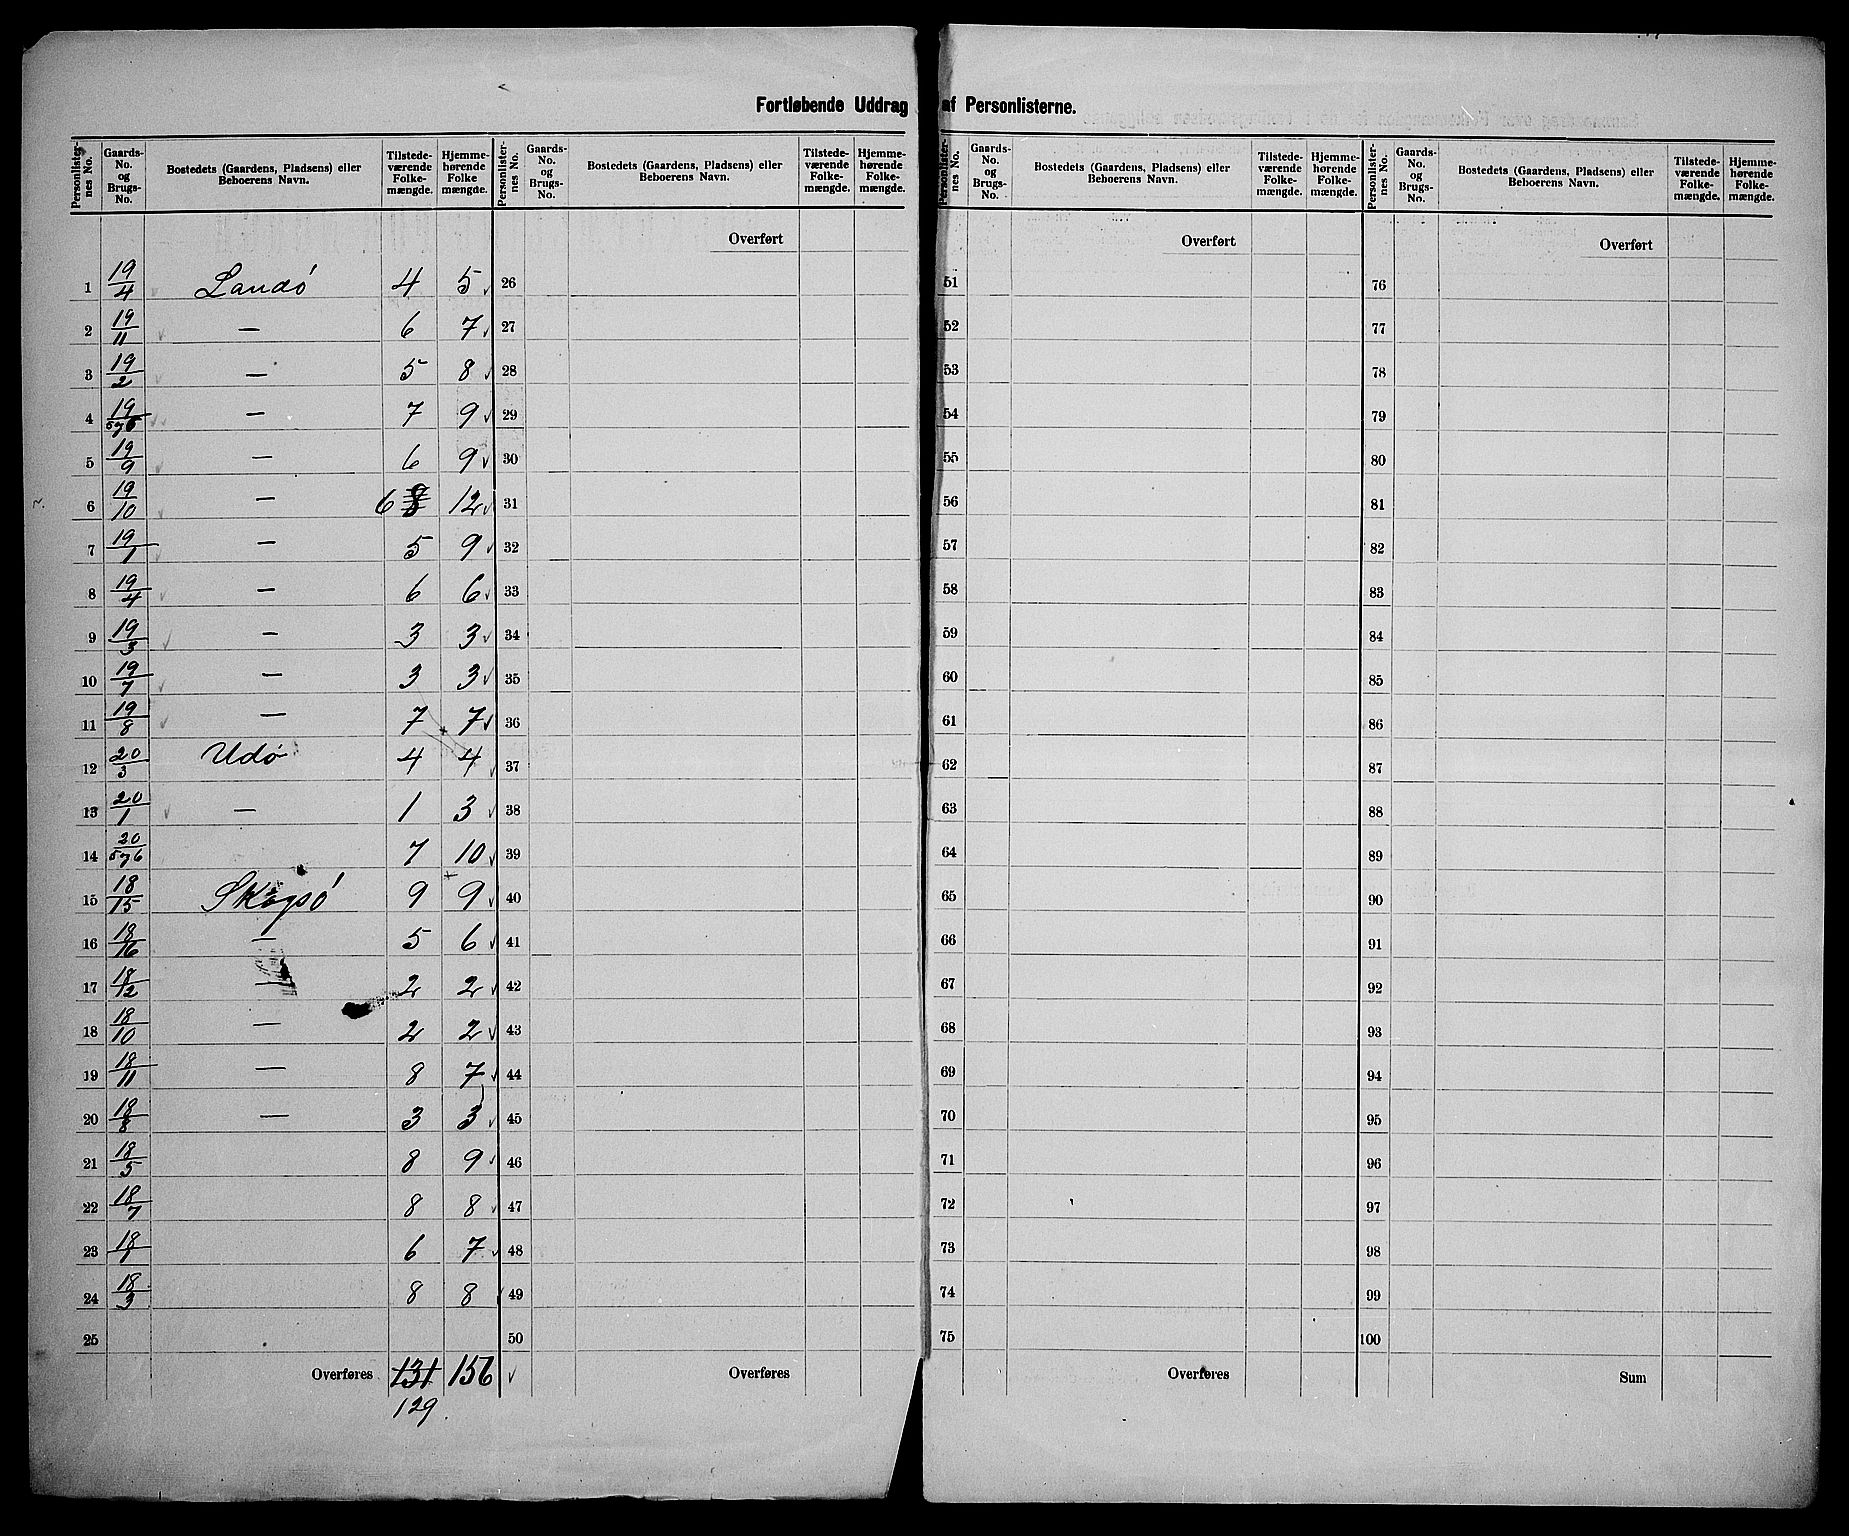 Fortløbende Uddrag af Personlisterne.
Personlister-nes No. | Gaards-No. og Brugs-No. | Bostedets (Gaardens, Pladsens) eller Beboerens Navn. | Tilstede-værende Folke-mængde. | Hjemme-hørende Folke mængde.
Personlister-nes No. | Gaards-No. og Brugs-No. | Bostedets (Gaardens, Pladsens) eller Beboerens Navn. | Tilstede-værende Folke-mængde. | Hjemme-hørende Folke-mængde.
Personlister-nes No. | Gaards-No. og Brugs-No. | Bostedets (Gaardens, Pladsens) eller Beboerens Navn. | Tilstede-værende Folke-mængde. | Hjemme-hørende Folke-mængde.
Personlister-nes No. | Gaards-No. og Brugs-No. | Bostedets (Gaardens, Pladsens) eller Beboerens Navn. | Tilstede-værende Folke-mængde. | Hjemme-hørende Folke-mængde.
Overført Overført Overført
1 19/4 Landø 4 5 26 51 76
2 19/11 — 6 7 27 52 77
3 19/2 — 5 8 28 53 78
4 19/5 7 6 — 7 9 29 54 79
5 19/9 — 6 9 30 55 80
6 19/10 — 6 8 12 31 56 81
7 19/1 — 5 9 32 57 82
8 19/4 — 6 6 33 58 83
9 19/3 — 3 3 34 59 84
10 19/7 — 3 3 35 60 85
11 19/8 — 7 7 36 61 86
12 20/3 Udø 4 4 37 62 87
13 20/1 — 1 3 38 63 88
14 20/5 7 6 7 10 39 64 89
15 18/15 Skogsø 9 9 40 65 90
16 18/16 — 5 6 41 66 91
17 18/12 — 2 2 42 67 92
18 18/10 — 2 2 43 68 93
19 18/11 — 8 7 44 69 94
20 18/8 — 3 3 45 70 95
21 18/5 8 9 46 71 96
22 18/7 8 8 47 72 97
23 18/1 6 7 48 73 98
24 18/3 8 8 49 74 99
25 50 75 100
Overføres 131 156 Overføres Overføres Sum
129